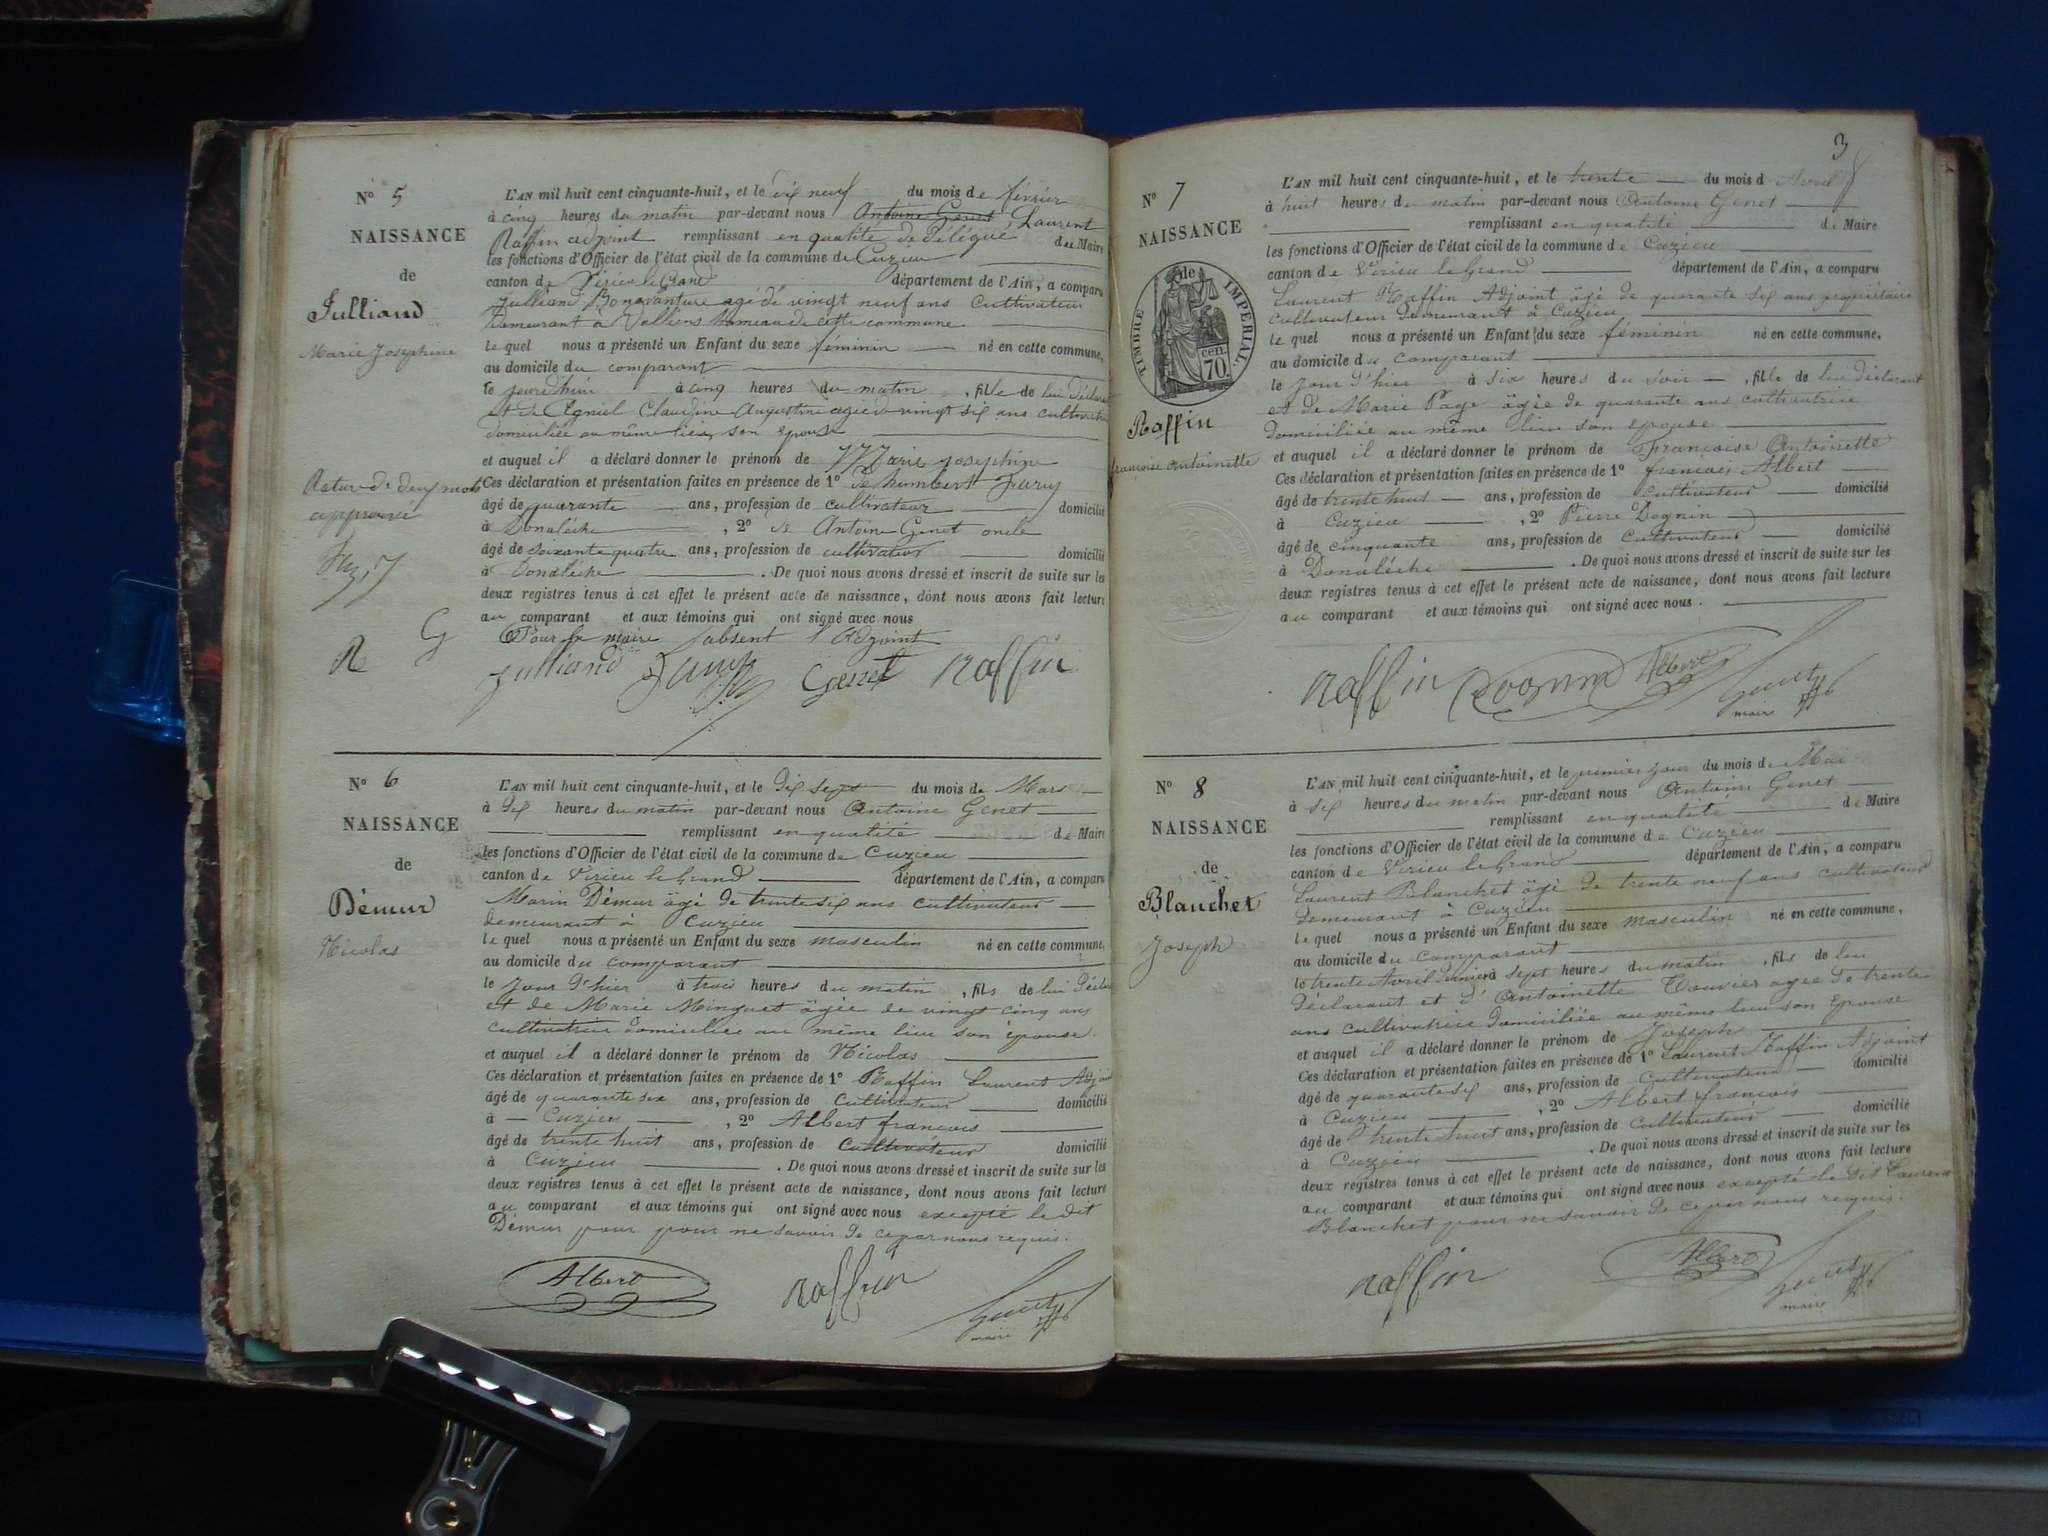 N° 5
NAISSANCE
de
Julliand
Marie Josephine
Rature de deux mots
approuvée
R G
L'AN mil huit cent cinquante-huit, et le dix neuf du mois de février
à cinq heures du matin par-devant nous Antoine Genet Laurent
Raffin adjoint remplissant en qualité de Délégué du Maire
les fonctions d'Officier de l'état civil de la commune de Cuzieu
canton de Virieu le Grand département de l'Ain, a comparu
Julliand Bonaventure agé de vingt neuf ans Cultivateur
Demeurant à Vollien hameau de cette commune
le quel nous a présenté un Enfant du sexe féminin né en cette commune,
au domicile du comparant
le jourd'hui à cinq heures du matin, fille de lui déclarant
et de Claudine Augustine agée de vingt six ans cultivatrice
domiciliée au même lieu, son épouse
et auquel il a déclaré donner le prénom de Marie Josephine
Ces déclaration et présentation faites en présence de 1°
âgé de quarante ans, profession de cultivateur domicilié
à Donalèche, 2° de Antoine Genet oncle
âgé de soixante quatre ans, profession de cultivateur domicilié
à Donalèche. De quoi nous avons dressé et inscrit de suite sur les
deux registres tenus à cet effet le présent acte de naissance, dont nous avons fait lecture
au comparant et aux témoins qui ont signé avec nous
Pour le maire absent l'Adjoint
Julliand Genet Raffin
N° 6
NAISSANCE
de
Démur
Nicolas
L'AN mil huit cent cinquante-huit, et le Dix sept du mois de Mars
à Dix heures du matin par-devant nous Antoine Genet
remplissant en qualité de Maire
les fonctions d'Officier de l'état civil de la commune de Cuzieu
canton de Virieu le Grand département de l'Ain, a comparu
Marin Démur âgé de trente six ans cultivateur
demeurant à Cuzieu
le quel nous a présenté un Enfant du sexe masculin né en cette commune,
au domicile du comparant
le Jour d'hier à trois heures du matin, fils de lui Déclarant
et de Marie Minguet âgée de vingt cinq ans
cultivatrice domiciliée au même lieu son épouse.
et auquel il a déclaré donner le prénom de Nicolas
Ces déclaration et présentation faites en présence de 1° Raffin Laurent Adjoint
âgé de quarante six ans, profession de Cultivateur domicilié
à Cuzieu, 2° Albert francois
âgé de trente huit ans, profession de Cultivateur domicilié
à Cuzieu. De quoi nous avons dressé et inscrit de suite sur les
deux registres tenus à cet effet le présent acte de naissance, dont nous avons fait lecture
au comparant et aux témoins qui ont signé avec nous excepté le dit
Démur pour pour ne savoir de ce par nous requis.
Albert Raffin Genet
maire
3
N° 7
NAISSANCE
de
TIMBRE IMPERIAL.
70 cen
Raffin
francoise Antoinette
L'AN mil huit cent cinquante-huit, et le trente du mois d Avril
à huit heures du matin par-devant nous Antoine Genet
remplissant en qualité de Maire
les fonctions d'Officier de l'état civil de la commune de Cuzieu
canton de Virieu le Grand département de l'Ain, a comparu
Laurent Raffin Adjoint âgé de quarante six ans propriétaire
cultivateur demeurant à Cuzieu
le quel nous a présenté un Enfant du sexe féminin né en cette commune,
au domicile du comparant
le Jour d'hier à six heures du soir, fille de lui déclarant
et de Marie Page âgée de quarante ans cultivatrice
Domiciliée au même lieu son épouse
et auquel il a déclaré donner le prénom de Francoise Antoinette
Ces déclaration et présentation faites en présence de 1° francois Albert
âgé de trente huit ans, profession de Cultivateur domicilié
à Cuzieu, 2° Pierre Dognin
âgé de cinquante ans, profession de Cultivateur domicilié
à Donalèche. De quoi nous avons dressé et inscrit de suite sur les
deux registres tenus à cet effet le présent acte de naissance, dont nous avons fait lecture
au comparant et aux témoins qui ont signé avec nous.
Raffin Dognin Albert Genet
maire
N° 8
NAISSANCE
de
Blanchet
Joseph
L'AN mil huit cent cinquante-huit, et le premier jour du mois de Mai
à six heures du matin par-devant nous Antoine Genet
remplissant en qualité de Maire
les fonctions d'Officier de l'état civil de la commune de Cuzieu
canton de Virieu le Grand département de l'Ain, a comparu
Laurent Blanchet âgé de trente neuf ans cultivateur
Demeurant à Cuzieu
le quel nous a présenté un Enfant du sexe masculin né en cette commune,
au domicile du comparant
le trente Avril dernier à sept heures du matin, fils de lui
Déclarant et d'Antoinette Touvier agée de trente
ans cultivatrice Domiciliée au même lieu son Epouse
et auquel il a déclaré donner le prénom de Joseph
Ces déclaration et présentation faites en présence de 1° Laurent Raffin Adjoint
âgé de quarante six ans, profession de Cultivateur domicilié
à Cuzieu, 2° Albert francois
âgé de trente huit ans, profession de Cultivateur domicilié
à Cuzieu. De quoi nous avons dressé et inscrit de suite sur les
deux registres tenus à cet effet le présent acte de naissance, dont nous avons fait lecture
au comparant et aux témoins qui ont signé avec nous excepté le dit Laurent
Blanchet pour ne savoir de ce par nous requis.
Raffin Albert Genet
maire